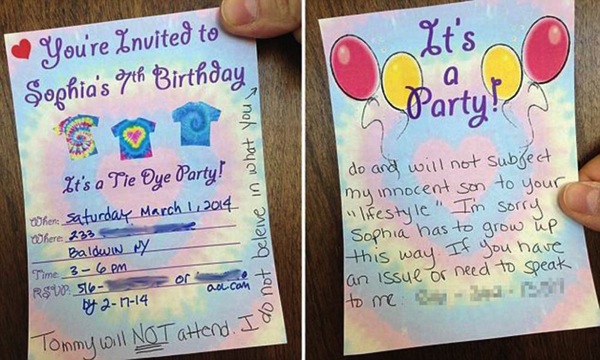 You're Invited to
Sophia's 7th Birthday
It's a Tie Dye Party!
When: Saturday, March 1, 2014
Where: 233
Baldwin NY
Time 3-6 pm
RSVP: 516- or aol.com
by 2-17-14
Tommy will NOT attend. I do not believe in what you →
It's
a
Party!
do and will not subject
my innocent son to your
"lifestyle" I'm sorry
Sophia has to grow up
this way. If you have
an issue or need to speak
to me: